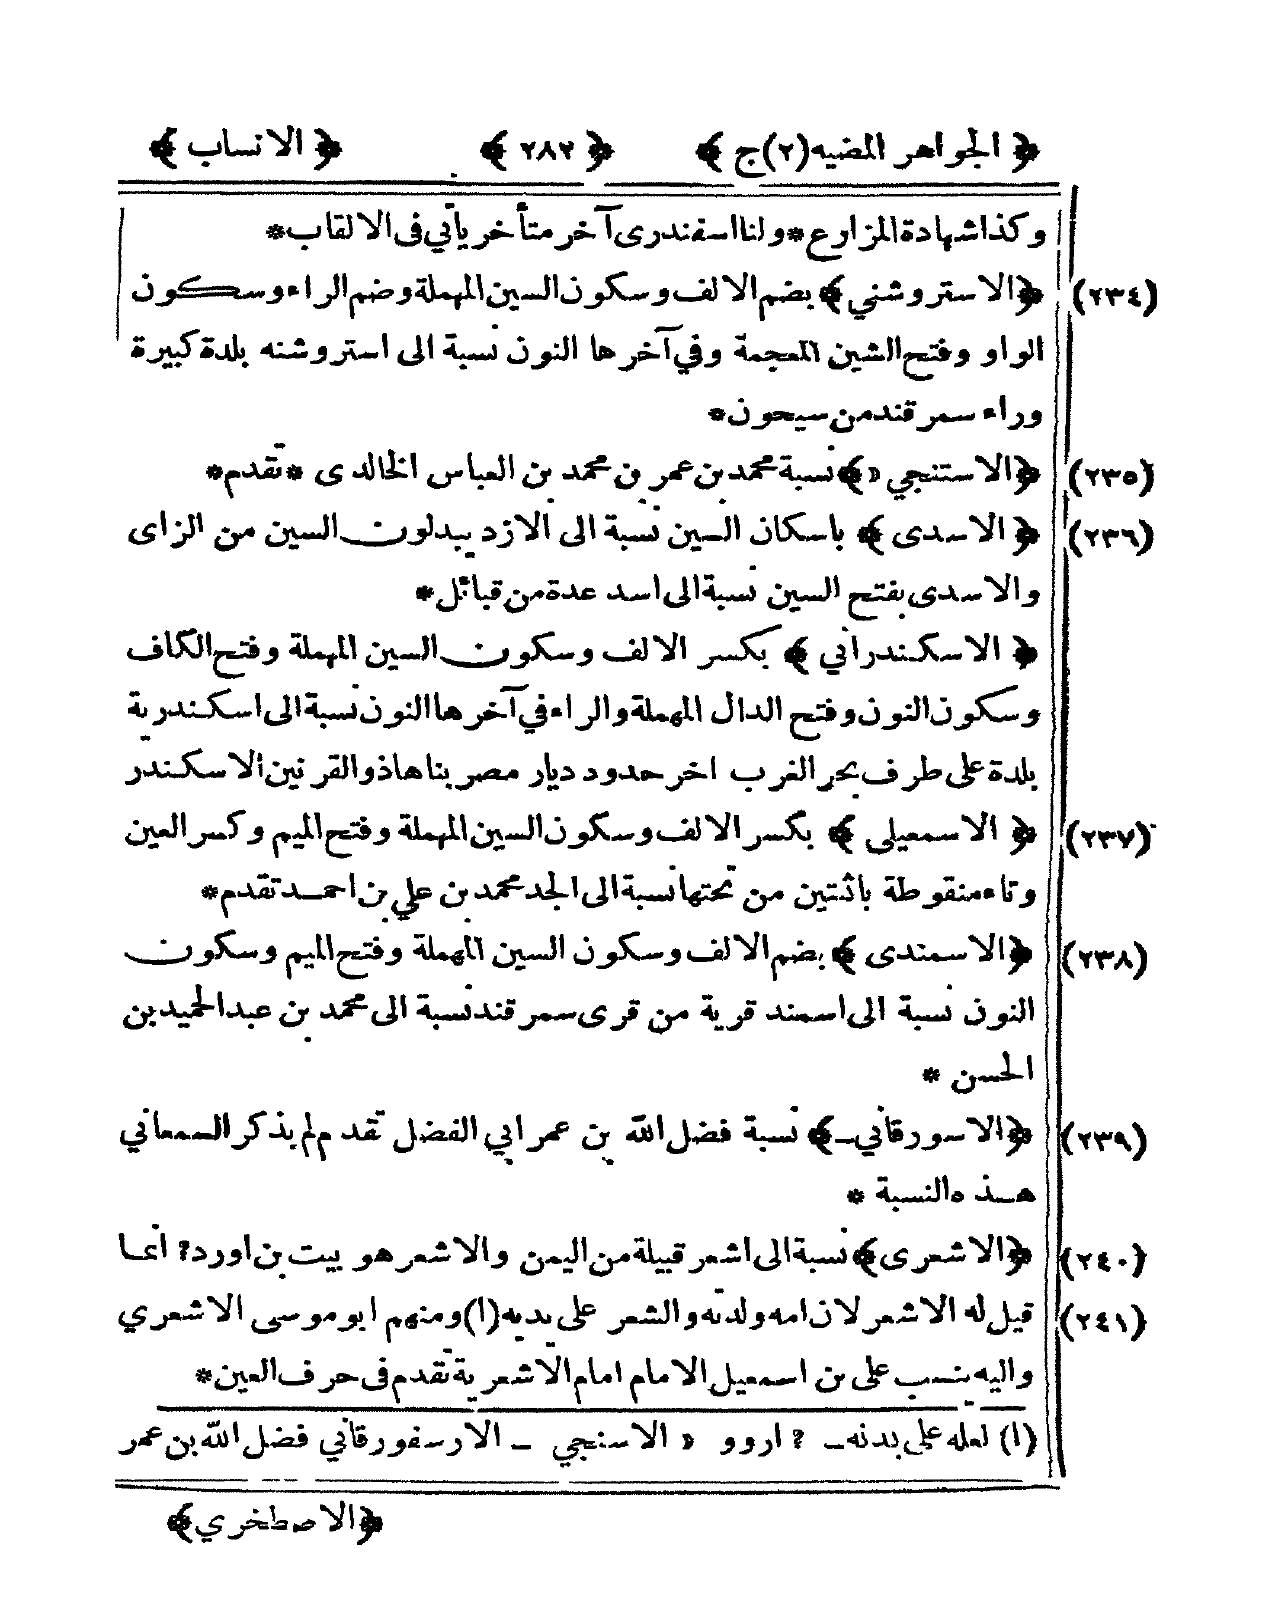 ﴿ الجواهر المضيه(٢)ج ﴾ ﴿ ٢٨٣ ﴾ ﴿ الانساب ﴾
وكذاشهادة المزارع*ولنااسفندرى آخر متأخر يأتي فى الالقاب*
(٢٣٤) ﴿الاستروشني﴾ بضم الالف وسكون السين المهملة وضم الراء وسكون
الواو وفتح الشين المعجمة وفي آخرها النون نسبة الى استروشنه بلدة كبيرة
وراء سمرقند من سيحون*
(٢٣٥) ﴿الاستنجي «﴾ نسبة محمد بن عمر بن محمد بن العباس الخالدى * تقدم*
(٢٣٦) ﴿ الاسدى ﴾ باسكان السين نسبة الى الازد يبدلون السين من الزاى
والاسدى بفتح السين نسبة الى اسد عدة من قبائل*
﴿ الاسكندراني ﴾ بكسر الالف وسكون السين المهملة وفتح الكاف
وسكون النون وفتح الدال المهملة والراء في آخرها النون نسبة الى اسكندرية
بلدة على طرف بحر الغرب اخر حدود ديار مصر بناها ذوالقرنين الاسكندر
(٢٣٧) ﴿ الاسمعيلى ﴾ بكسر الالف وسكون السين المهملة وفتح الميم وكسر العين
وتاء منقوطة باثنتين من تحتها نسبة الى الجد محمد بن علي بن احمد تقدم*
(٢٣٨) ﴿الاسمندى ﴾ بضم الالف وسكون السين المهملة وفتح الميم وسكون
النون نسبة الى اسمند قرية من قرى سمرقند نسبة الى محمد بن عبدالحميد بن
الحسن *
(٢٣٩) ﴿الاسورقاني_﴾ نسبة فضل الله بن عمر ابي الفضل تقدم لم يذكر السمعاني
هذه النسبة *
(٢٤٠) ﴿الاشعرى﴾ نسبة الى اشعر قبيلة من اليمن والاشعر هو بيت بن اورد? انما
(٢٤١) قيل له الاشعر لان امه ولدته والشعر على يديه(١) ومنهم ابو موسى الاشعري
واليه ينسب على بن اسمعيل الامام امام الاشعرية تقدم فى حرف العين*
(١) لعله على بدنه_ ? اروو « الاسنجي _ الارسفورقاني فضل الله بن عمر
﴿الاصطخري﴾